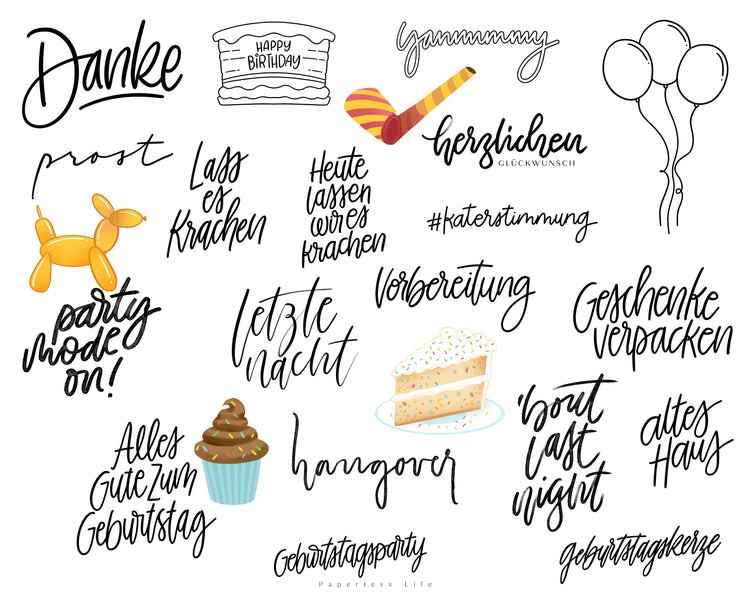 Danke
HAPPY
BIRTHDAY
Yammmmy
prost
Lass
es
Krachen
Heute
lassen
wir es
krachen
herzlichen
GLÜCKWUNSCH
#Katerstimmung
party
mode
on!
letzte
nacht
Vorbereitung
Geschenke
verpacken
Alles
Gute Zum
Geburtstag
hangover
'bout
last
night
altes
Haus
Geburtstagsparty
geburtstagskerze
Paperless Life